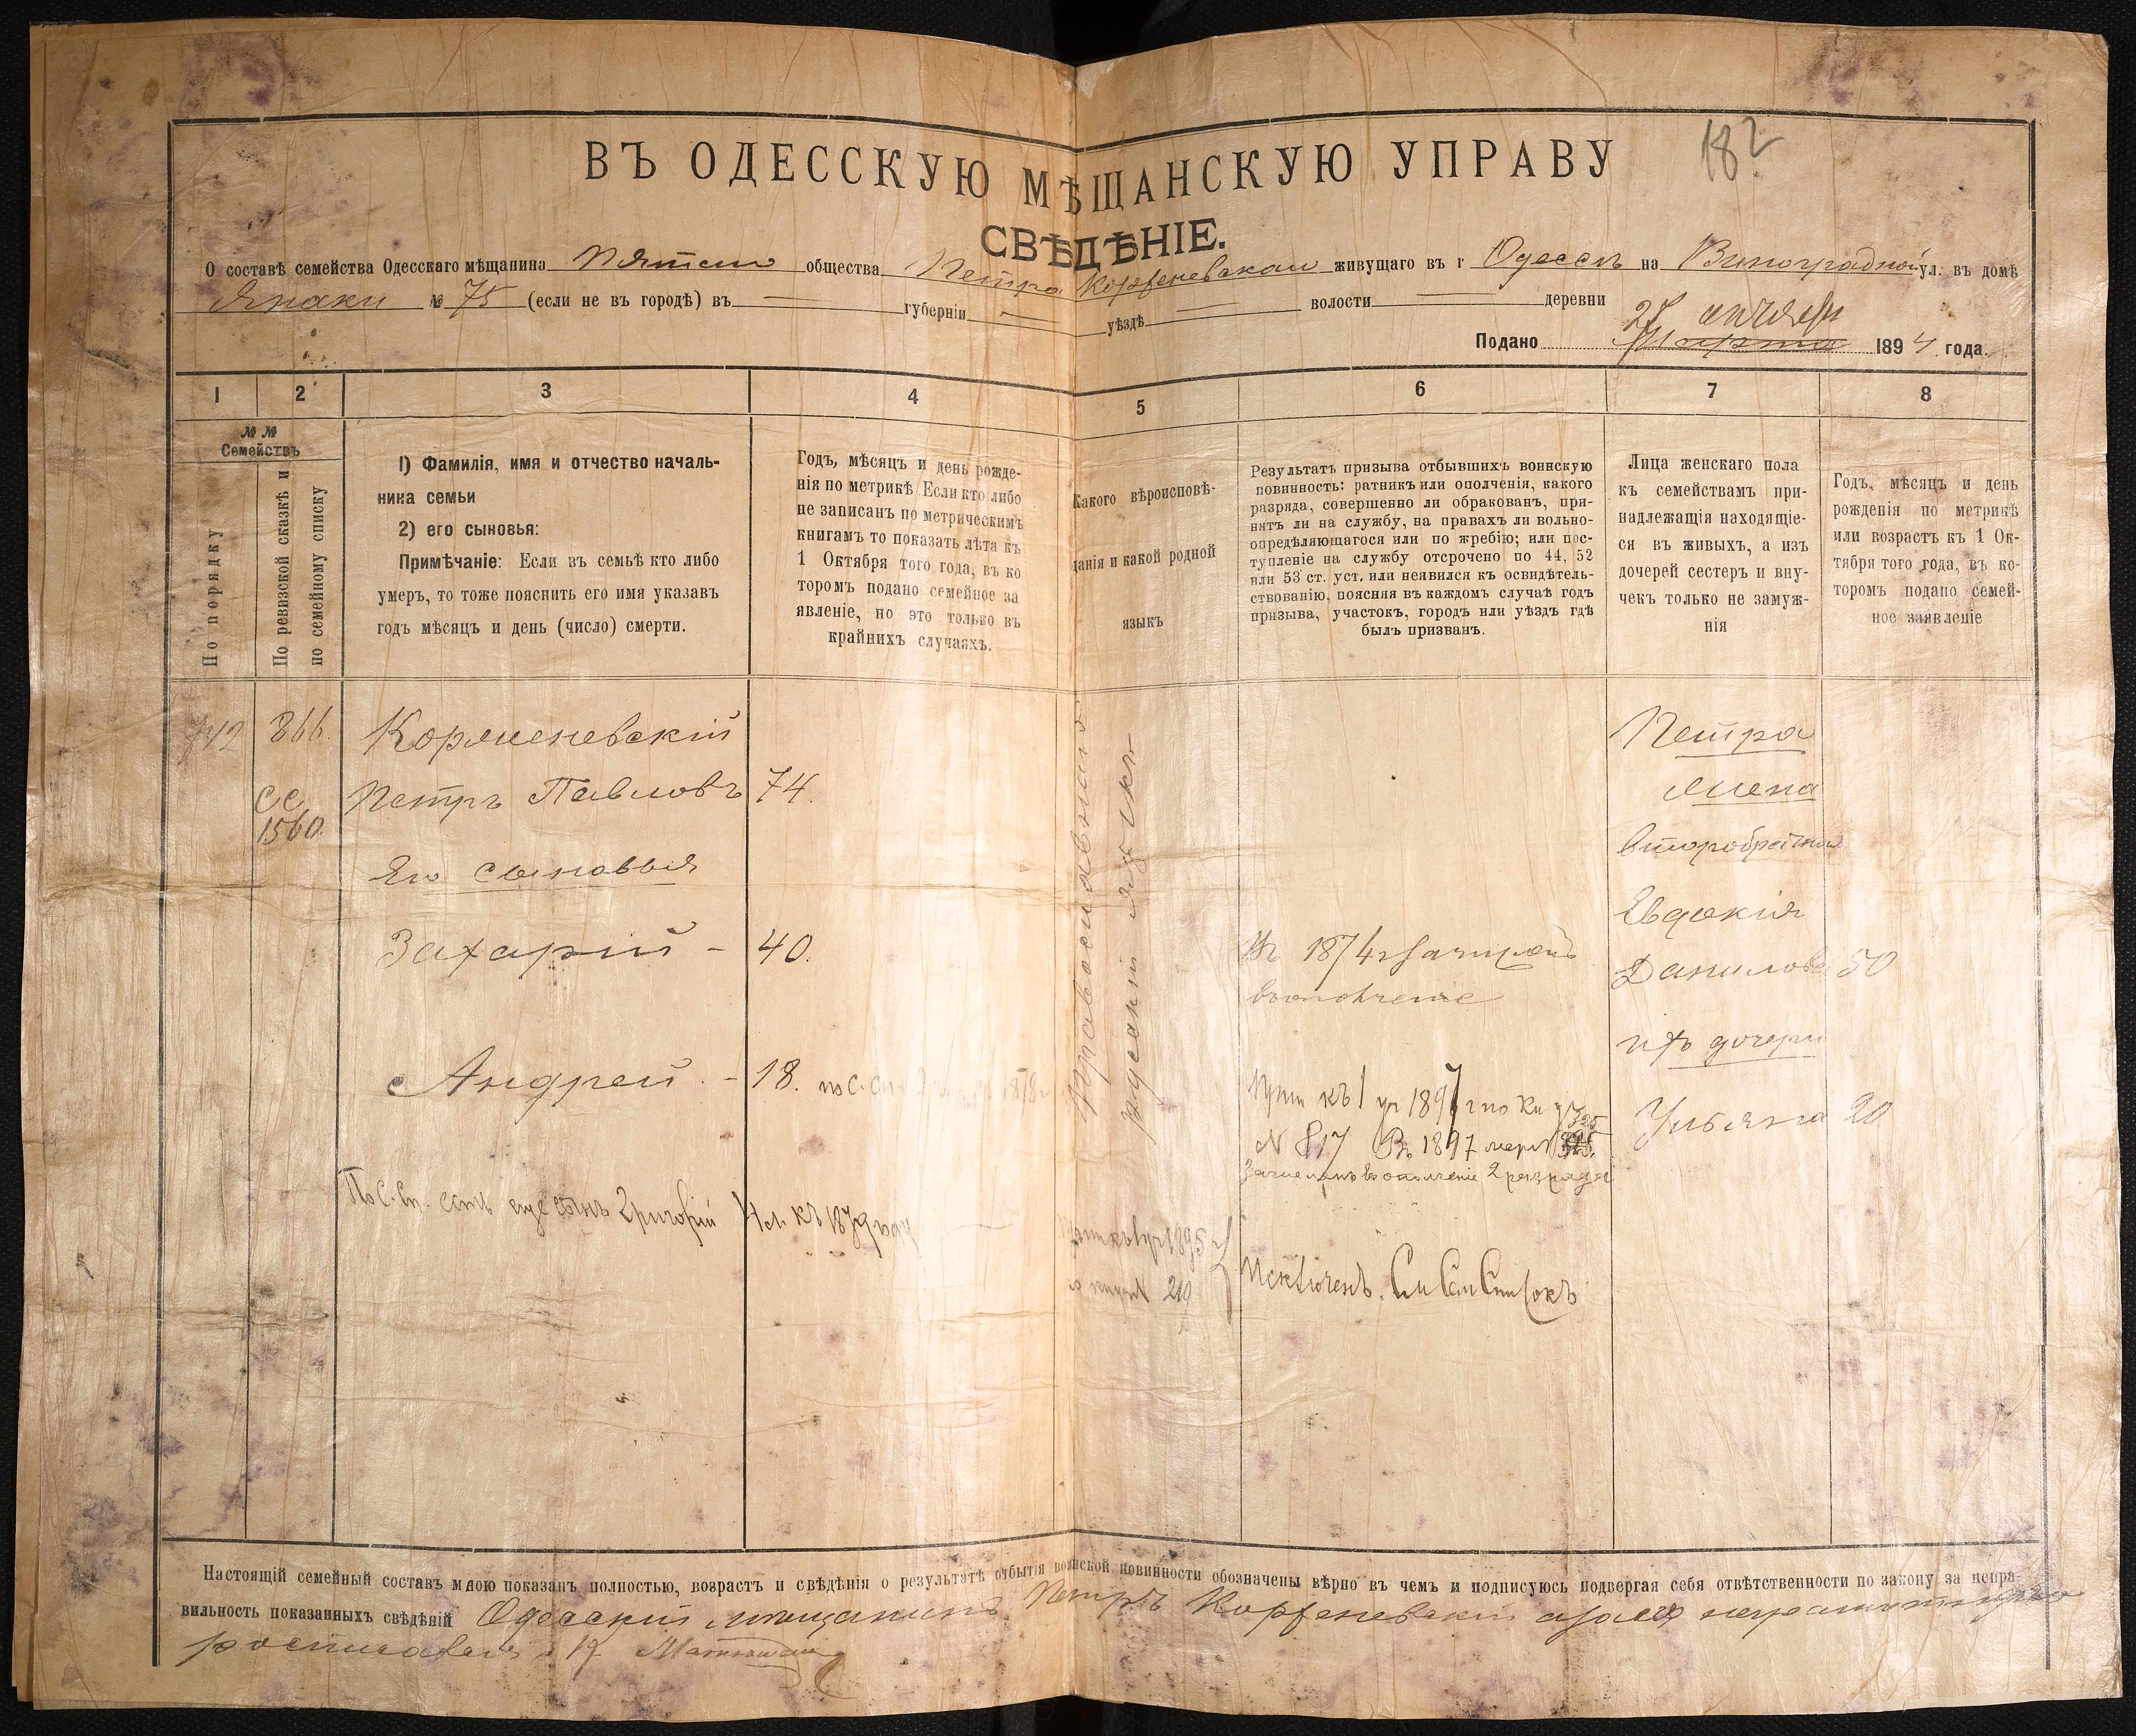 182
ВЪ ОДЕССКУЮ МѢЩАНСКУЮ УПРАВУ
СВѢДѢНІЕ.
О составѣ семейства Одесскаго мѣщанина Пятаго общества Петра живущаго въ г Одессѣ на Виноградной ул. въ домѣ
№ 75 (если не въ городѣ) въ губерніи уѣздѣ волости деревни
Подано 27 Марта 1894 года.
1 2 3 4 5 6 7 8
№ № Семействъ
По порядку
По ревизской сказкѣ и
по семейному списку
1) Фамилія, имя и отчество началь-
ника семьи
2) его сыновья:
Примѣчаніе: Если въ семьѣ кто либо
умеръ, то тоже пояснить его имя указавъ
годъ мѣсяцъ и день (число) смерти.
Годъ, мѣсяцъ и день рожде-
нія по метрикѣ Если кто либо
не записанъ по метрическимъ
книгамъ то показать лѣта къ
1 Октября того года, въ ко
торомъ подано семейное за
явленіе, но это только въ
крайнихъ случаяхъ.
Какого вѣроисповѣ-
данія и какой родной
языкъ
Результатъ призыва отбывшихъ воинскую
повинность: ратникъ или ополченія, какого
разряда, совершенно ли обракованъ, при-
нятъ ли на службу, на правахъ ли вольно-
опредѣляющагося или по жребію; или пос-
тупленіе на службу отсрочено по 44, 52
или 53 ст. уст. или неявился къ освидѣтель-
ствованію, поясняя въ каждомъ случаѣ годъ
призыва, участокъ, городъ или уѣздъ гдѣ
былъ призванъ.
Лица женскаго пола
къ семействамъ при-
надлежащія находящіе-
ся въ живыхъ, а изъ
дочерей сестеръ и вну-
чекъ только не замуж-
нія
Годъ, мѣсяцъ и день
рожденія по метрикѣ
или возрастъ къ 1 Ок-
тября того года, въ ко-
торомъ подано семей-
ное заявленіе
742 866.
СС
1560.
Петръ Павловъ 74.
Его сыновья
Захарій - 40.
Андрей - 18.
По С. Сп. есть еще сынъ Григорій 4 л. къ 1879 году
Православнаго
русскій языкъ
Въ 1874 г зачисленъ
въ ополченіе
къ 1 уч 1897 г по Кн
№ 817 В 1897 жереб 325
Зачисленъ въ ополченіе 2 разряда
Исключенъ. См Сем Списокъ
219
Петра
жена
второбрачная
Евдокія
Данилова 50
ихъ дочери
Ульяна 20
Настоящій семейный составъ мною показанъ полностью, возрастъ и свѣдѣнія о результатѣ отбытія воинской повинности обозначены вѣрно въ чемъ и подписуюсь подвергая себя отвѣтственности по закону за непра-
вильность показанныхъ свѣдѣній Одесскій мѣщанинъ Петръ
росписался